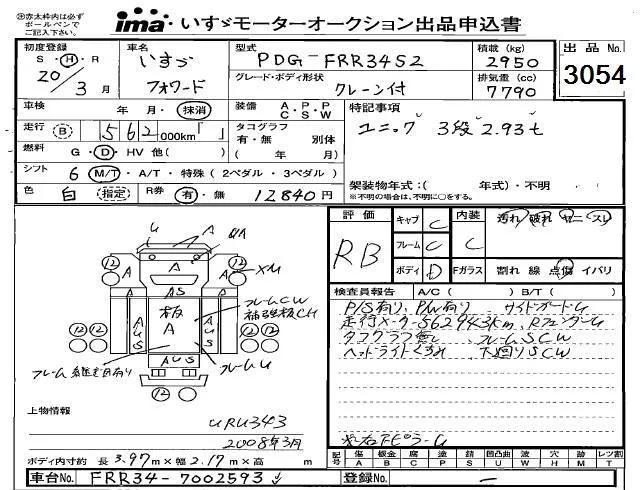 ㊟赤太枠内は必ず
ボールペンで
ご記入下さい。
ima いすゞモーターオークション出品申込書
初度登録
S・H・R
20/3月
車名
いすゞ
フォワード
型式
PDG-FRR34S2
グレード・ボディ形状
クレーン付
積載 (kg)
2950
排気量 (cc)
7790
出品 No.
3054
車検 年 月・抹消
装備 A・P・P
C S W
特記事項
ユニック 3段 2.93t
走行 B 562,000km「 」
タコグラフ
有・無 別体
( 年 月)
燃料 G・D・HV 他( )
シフト 6 M/T・A/T・特殊 (2ペダル・3ペダル)
色 白 (指定) R券 有・無 12840円
架装物年式:( 年式)・不明
※不明の場合は、不明に○をする。
評価 RB
キャブ C
フレーム C
ボディ D
内装 C
Fガラス
汚れ 破れ
割れ 線 点傷 イバリ
検査員報告 A/C( ) B/T( )
P/S有り、P/W有り サイドガードU
走行メーター562943km、RフェンダーU
タコグラフ無し フレームSCW
ヘッドライトくもり 下廻りSCW
U
A
UA
⑫
A
A
⑫
XM
A S
A
U
S
板
A
A
U
S
フレームCW
補強板CH
A U S
フレームU
フレーム継ぎ目有り
⑫
⑫
上物情報
URU343
2008年3月
ボディ内寸約 長3.97m×幅2.17m×高 m
記号 傷A 板金B 腐C 塗P 錆S 凹凸曲U 波W 穴H 欠M 要X レンズ割T
車台No. FRR34-7002593
登録No. ー